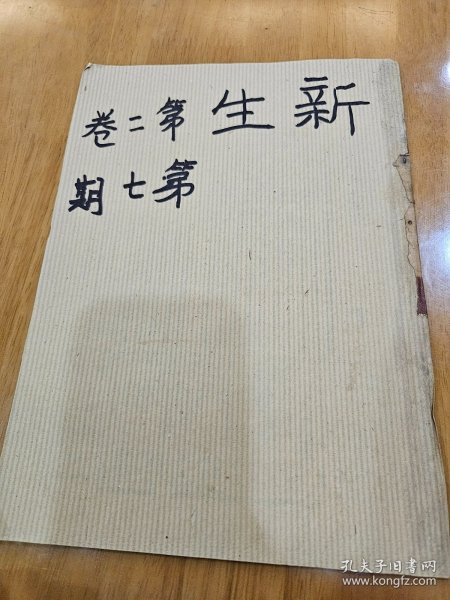 新生第二卷
第七期
孔夫子旧书网
www.kongfz.com